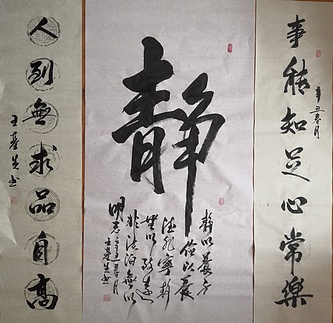 事能知足心常樂
辛丑春月
靜
静以養身
儉以養
德非寧静
無以致遠
非淡泊無以
明志辛丑春月
人到無求品自高